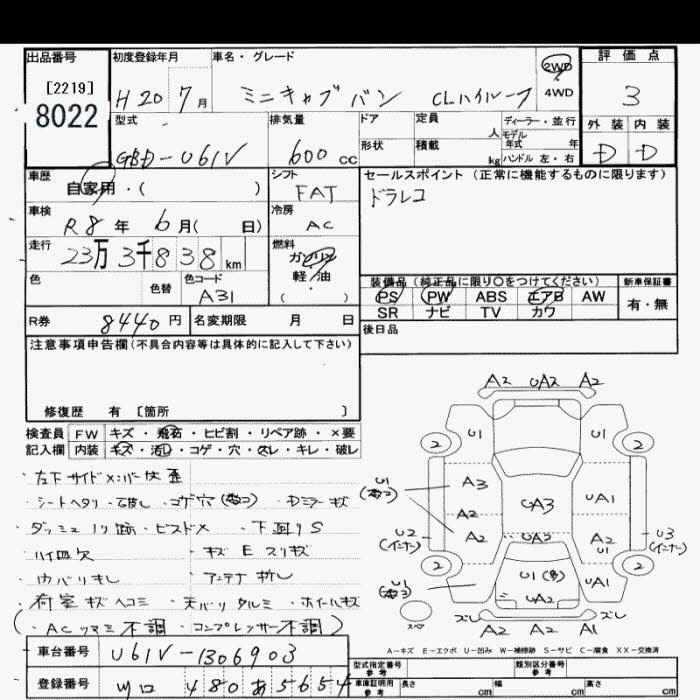 出品番号 初度登録年月 車名・グレード 2WD 評価点
[2219] H20 7月 ミニキャブバン CLハイルーフ 4WD 3
8022 型式 排気量 ドア 定員 人 ディーラー・並行 外装 内装
GBD-U61V 600cc 形状 積載 kg モデル年式 年 D D
ハンドル 左・右
車歴 シフト セールスポイント (正常に機能するものに限ります)
自家用・( ) FAT ドラレコ
車検 R8年 6月( 日) 冷房 AC
走行 23万3千838km 燃料 ガソリン
軽油
( )
色 色替 色コード A31
装備品 (純正品に限り〇をつけてください) 新車保証書
PS PW ABS エアB AW 有・無
SR ナビ TV カワ
R券 8440円 名変期限 月 日 後日品
注意事項申告欄(不具合内容等は具体的に記入して下さい)
修復歴 有 [箇所 ]
検査員 FW キズ・飛石・ヒビ割・リペア跡・×要
記入欄 内装 キズ・汚れ・コゲ・穴・スレ・キレ・破レ
・左下サイドメンバー
・シートヘタリ・破レ・コゲ穴
・ダッシュノリ跡・ビス穴・下回りS
・キズ E スリキズ
・ウバリキレ ・アンテナ折レ
・荷室キズヘコミ ・天バリタルミ ・ホイールキズ
(・ACツマミ不調 ・コンプレッサー不調)
A2 UA2 A2
2 U1 U1 2
U1 A3 UA3 UA1
A2
U2 (インナー) A2 UA3 A2 U1 U3 (インナー)
2 U1(多) 2
U1 UA2 UA1
スペア スレ A2 A2 A1 スレ
A-キズ E-エクボ U-凹み W-補修跡 S-サビ C-腐食 XX-交換済
車台番号 U61V-1306903
登録番号 480あ5654
型式指定番号 参考 類別区分番号 参考
車庫証明用 参考 長さ cm 幅 cm 高さ cm